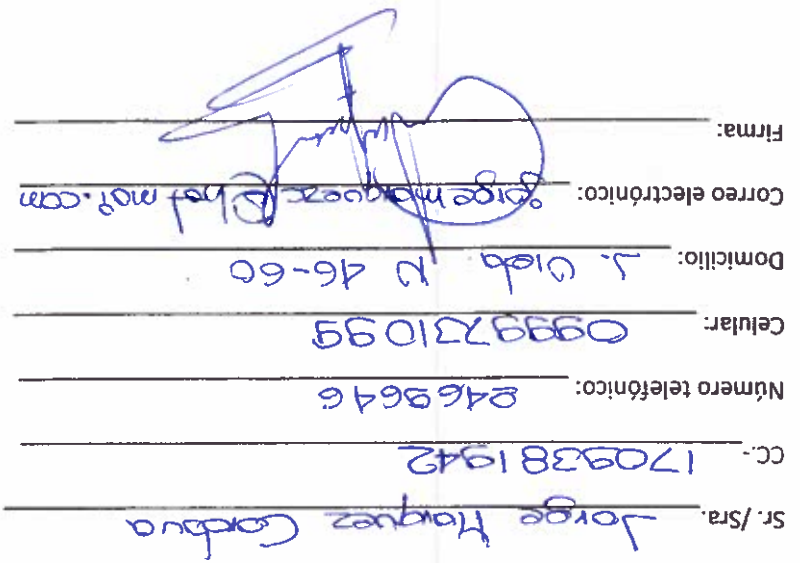 Sr./Sra. Jorge Marquez Cordova
CC.- 1709381942
Número telefónico: 2469646
Celular: 0999731099
Domicilio: J. N 46-60
Correo electrónico: jorgemarquezc@hotmail.com
Firma: